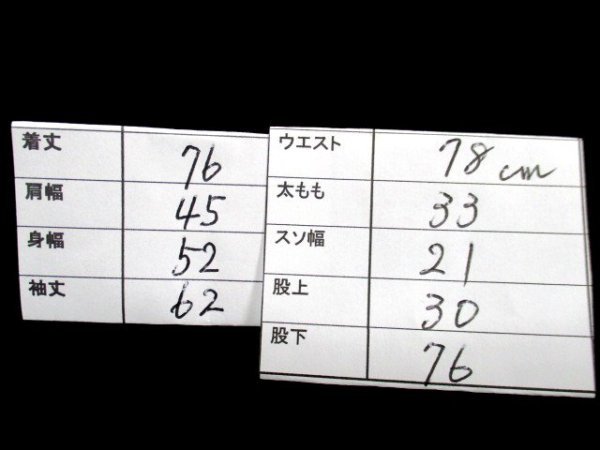 着丈 76
肩幅 45
身幅 52
袖丈 62
ウエスト 78 cm
太もも 33
スソ幅 21
股上 30
股下 76